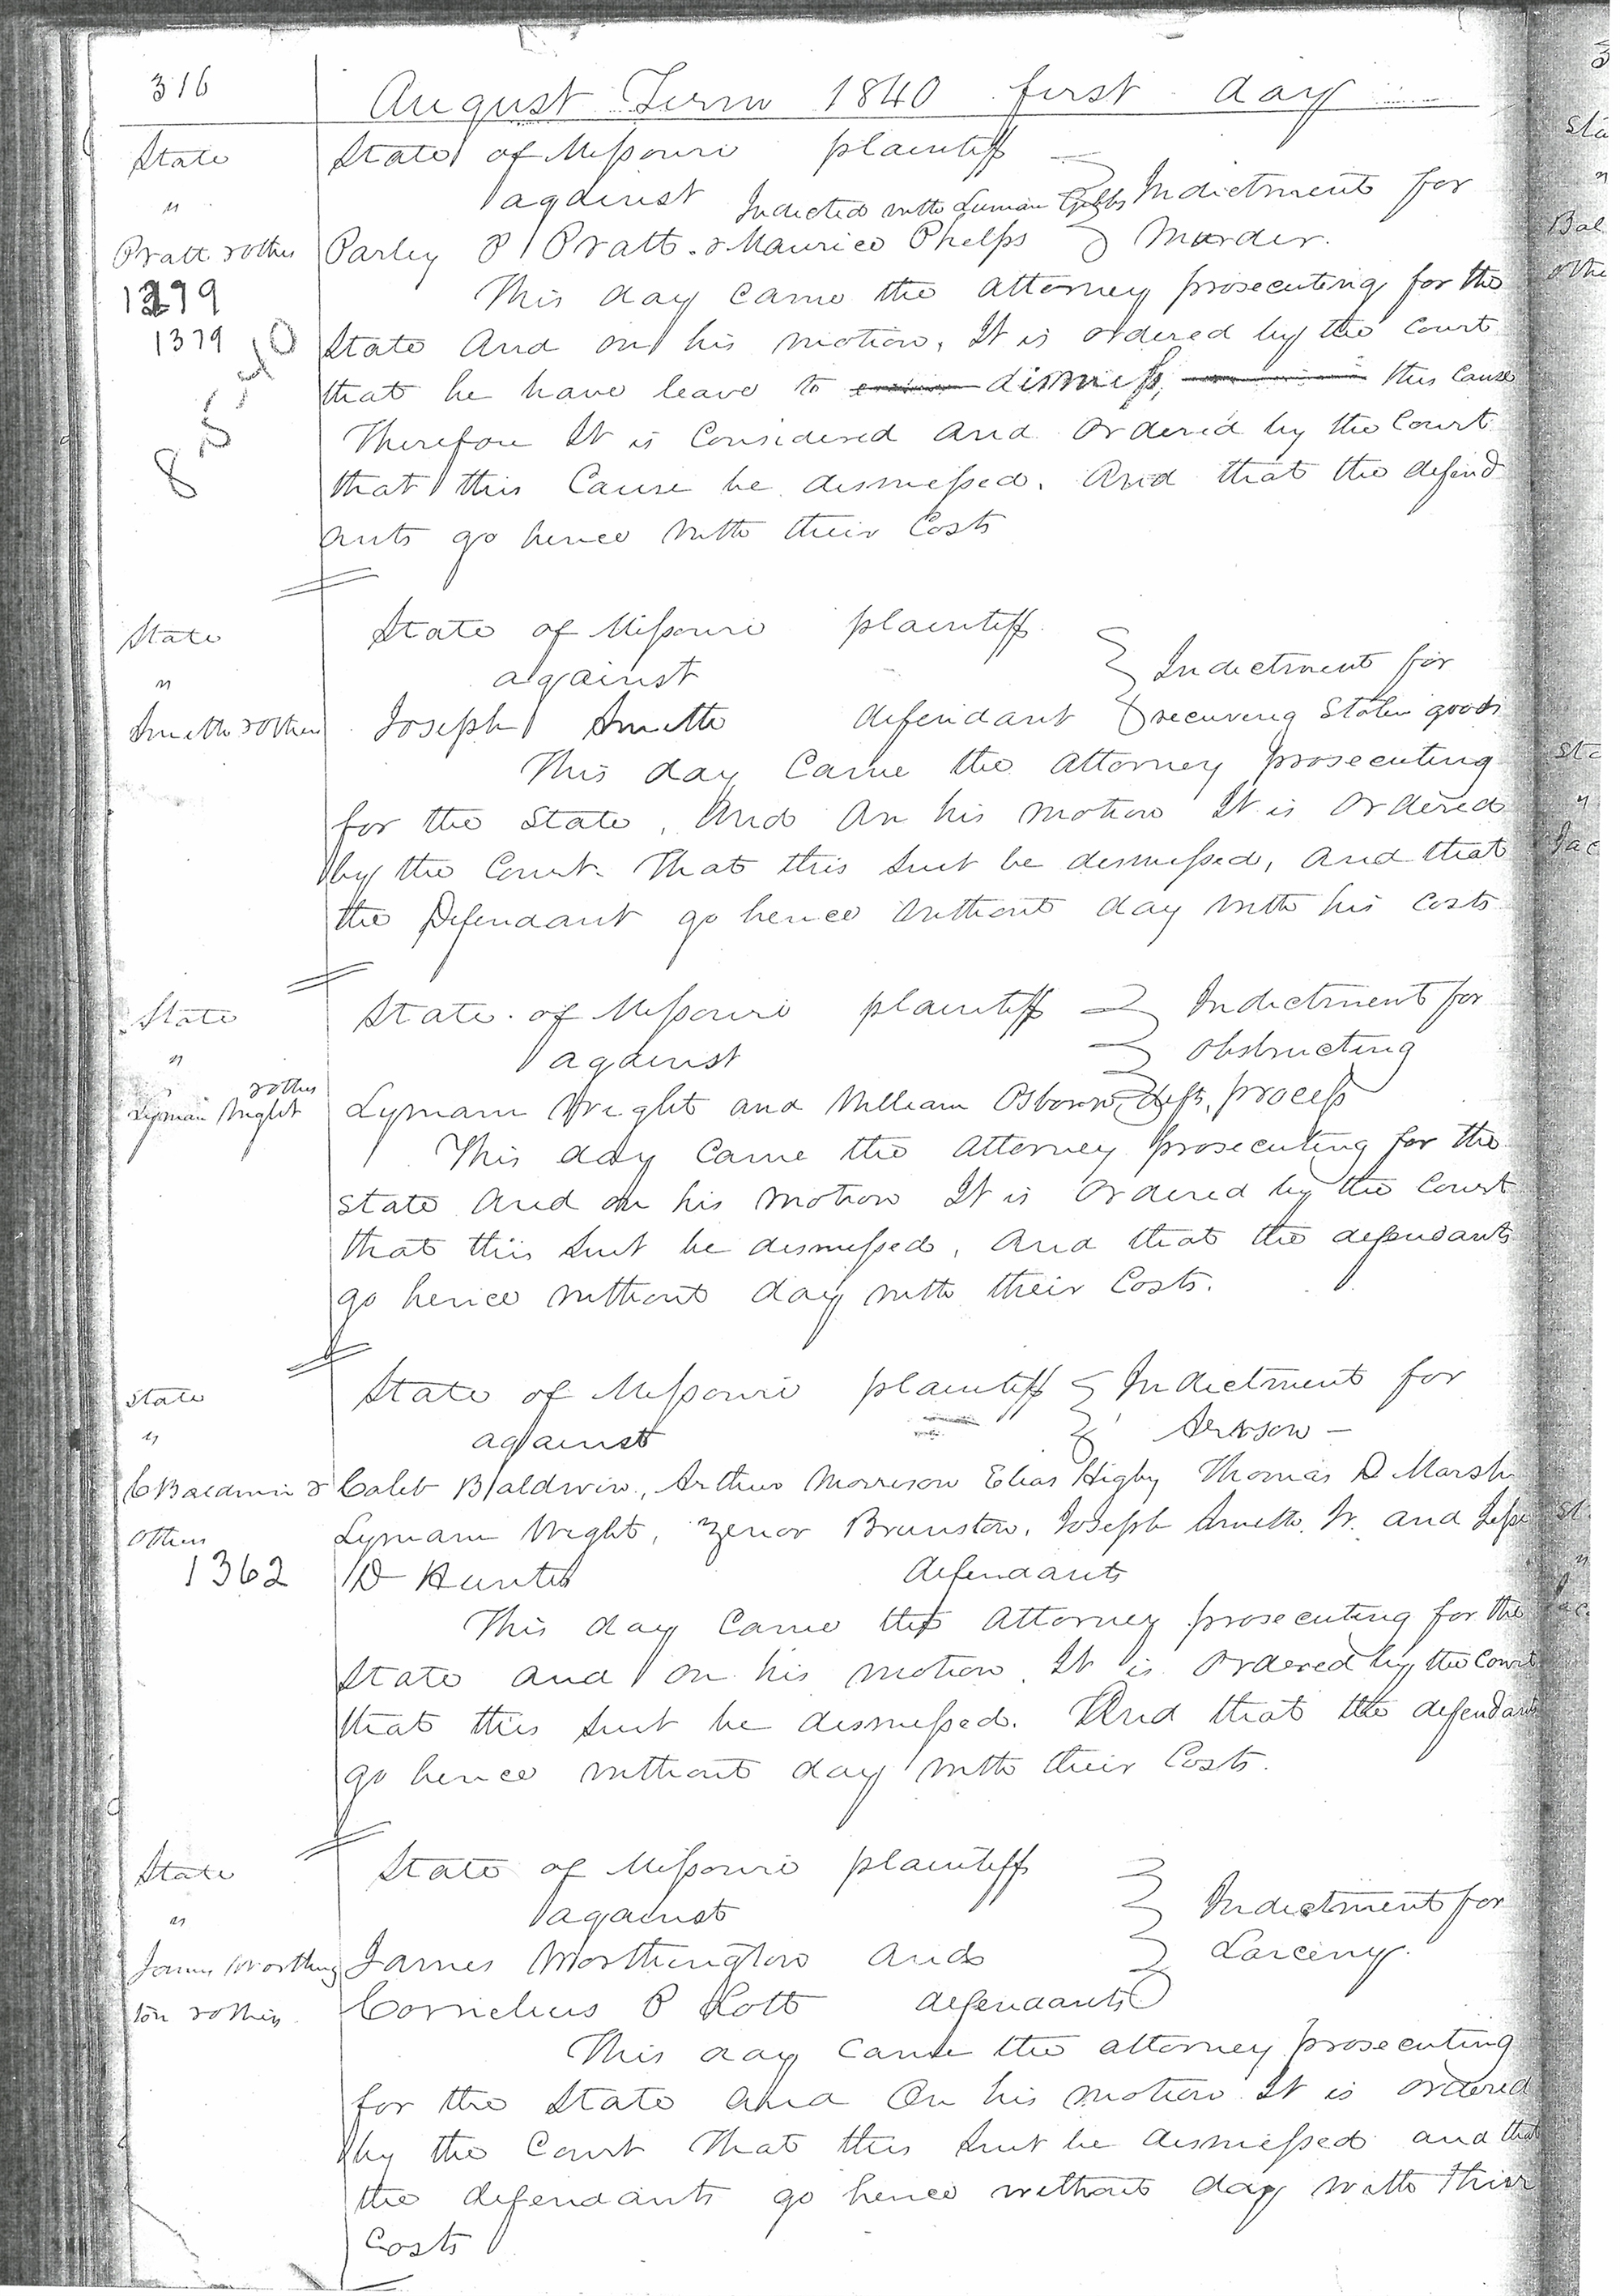 316
August Term 1840 first day
State
"
Pratt & other
1279
1379
State of Missouri plaintiff
against Indicted with Luman Gibbs Indictment for
Parley P Pratt & Maurice Phelps Murder.
This day came the attorney prosecuting for the
State And on his motion, It is ordered by the Court
that he have leave to dismiss, this Cause
Therefore It is Considered and ordered by the Court
that this Cause be dismissed. And that the defend
ants go hence with their Costs
State
"
Smith & others
State of Missouri plaintiff
against Indictment for
Joseph Smith defendant receiving Stolen goods
This day Came the attorney prosecuting
for the State, And on his motion It is Ordered
by the Court. That this Suit be dismissed, and that
the Defendant go hence without day with his Costs
State
"
& other
Lyman Wight
State of Missouri plaintiff Indictment for
against obstructing
Lymam Wright and William Osborn, defts, process
This day Came the attorney prosecuting for the
State and on his motion It is Ordered by the Court
that this Suit be dismissed, and that the defendants
go hence without day with their Costs.
State
"
C Baldwin &
others
1362
State of Missouri plaintiff Indictment for
against Arkson –
Caleb Baldwin, Arthur Morrison Elias Higby Thomas D Marsh
Lymam Wright, Zenor Brunston, Joseph Smith Jr. and Jesse
D Hunter defendants
This day Came the attorney prosecuting for the
State and on his motion It is Ordered by the Court
that this Suit be dismissed. And that the defendants
go hence without day with their Costs.
State
"
James Worthing
ton & others
State of Missouri plaintiff
against Indictment for
James Worthington and Larceny.
Cornelius P Lott defendants
This day came the attorney prosecuting
for the State and On his motion It is ordered
by the Court That this Suit be dismissed and that
the defendants go hence without day with thier
Costs